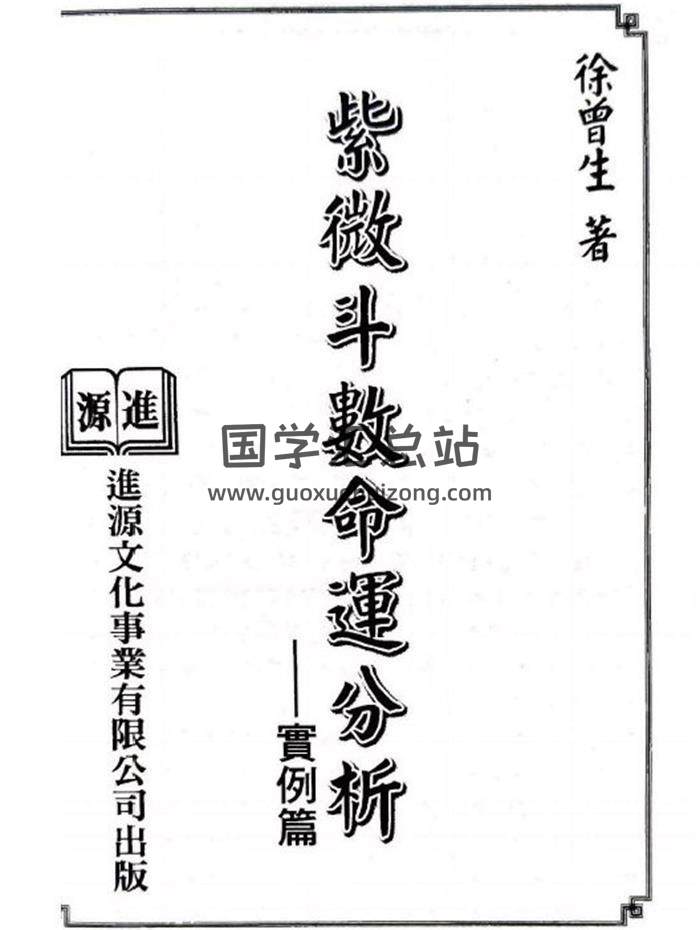 徐曾生 著
紫微斗數命運分析
——實例篇
進源
進源文化事業有限公司出版
国学
总站
www.guoxue
izong.com